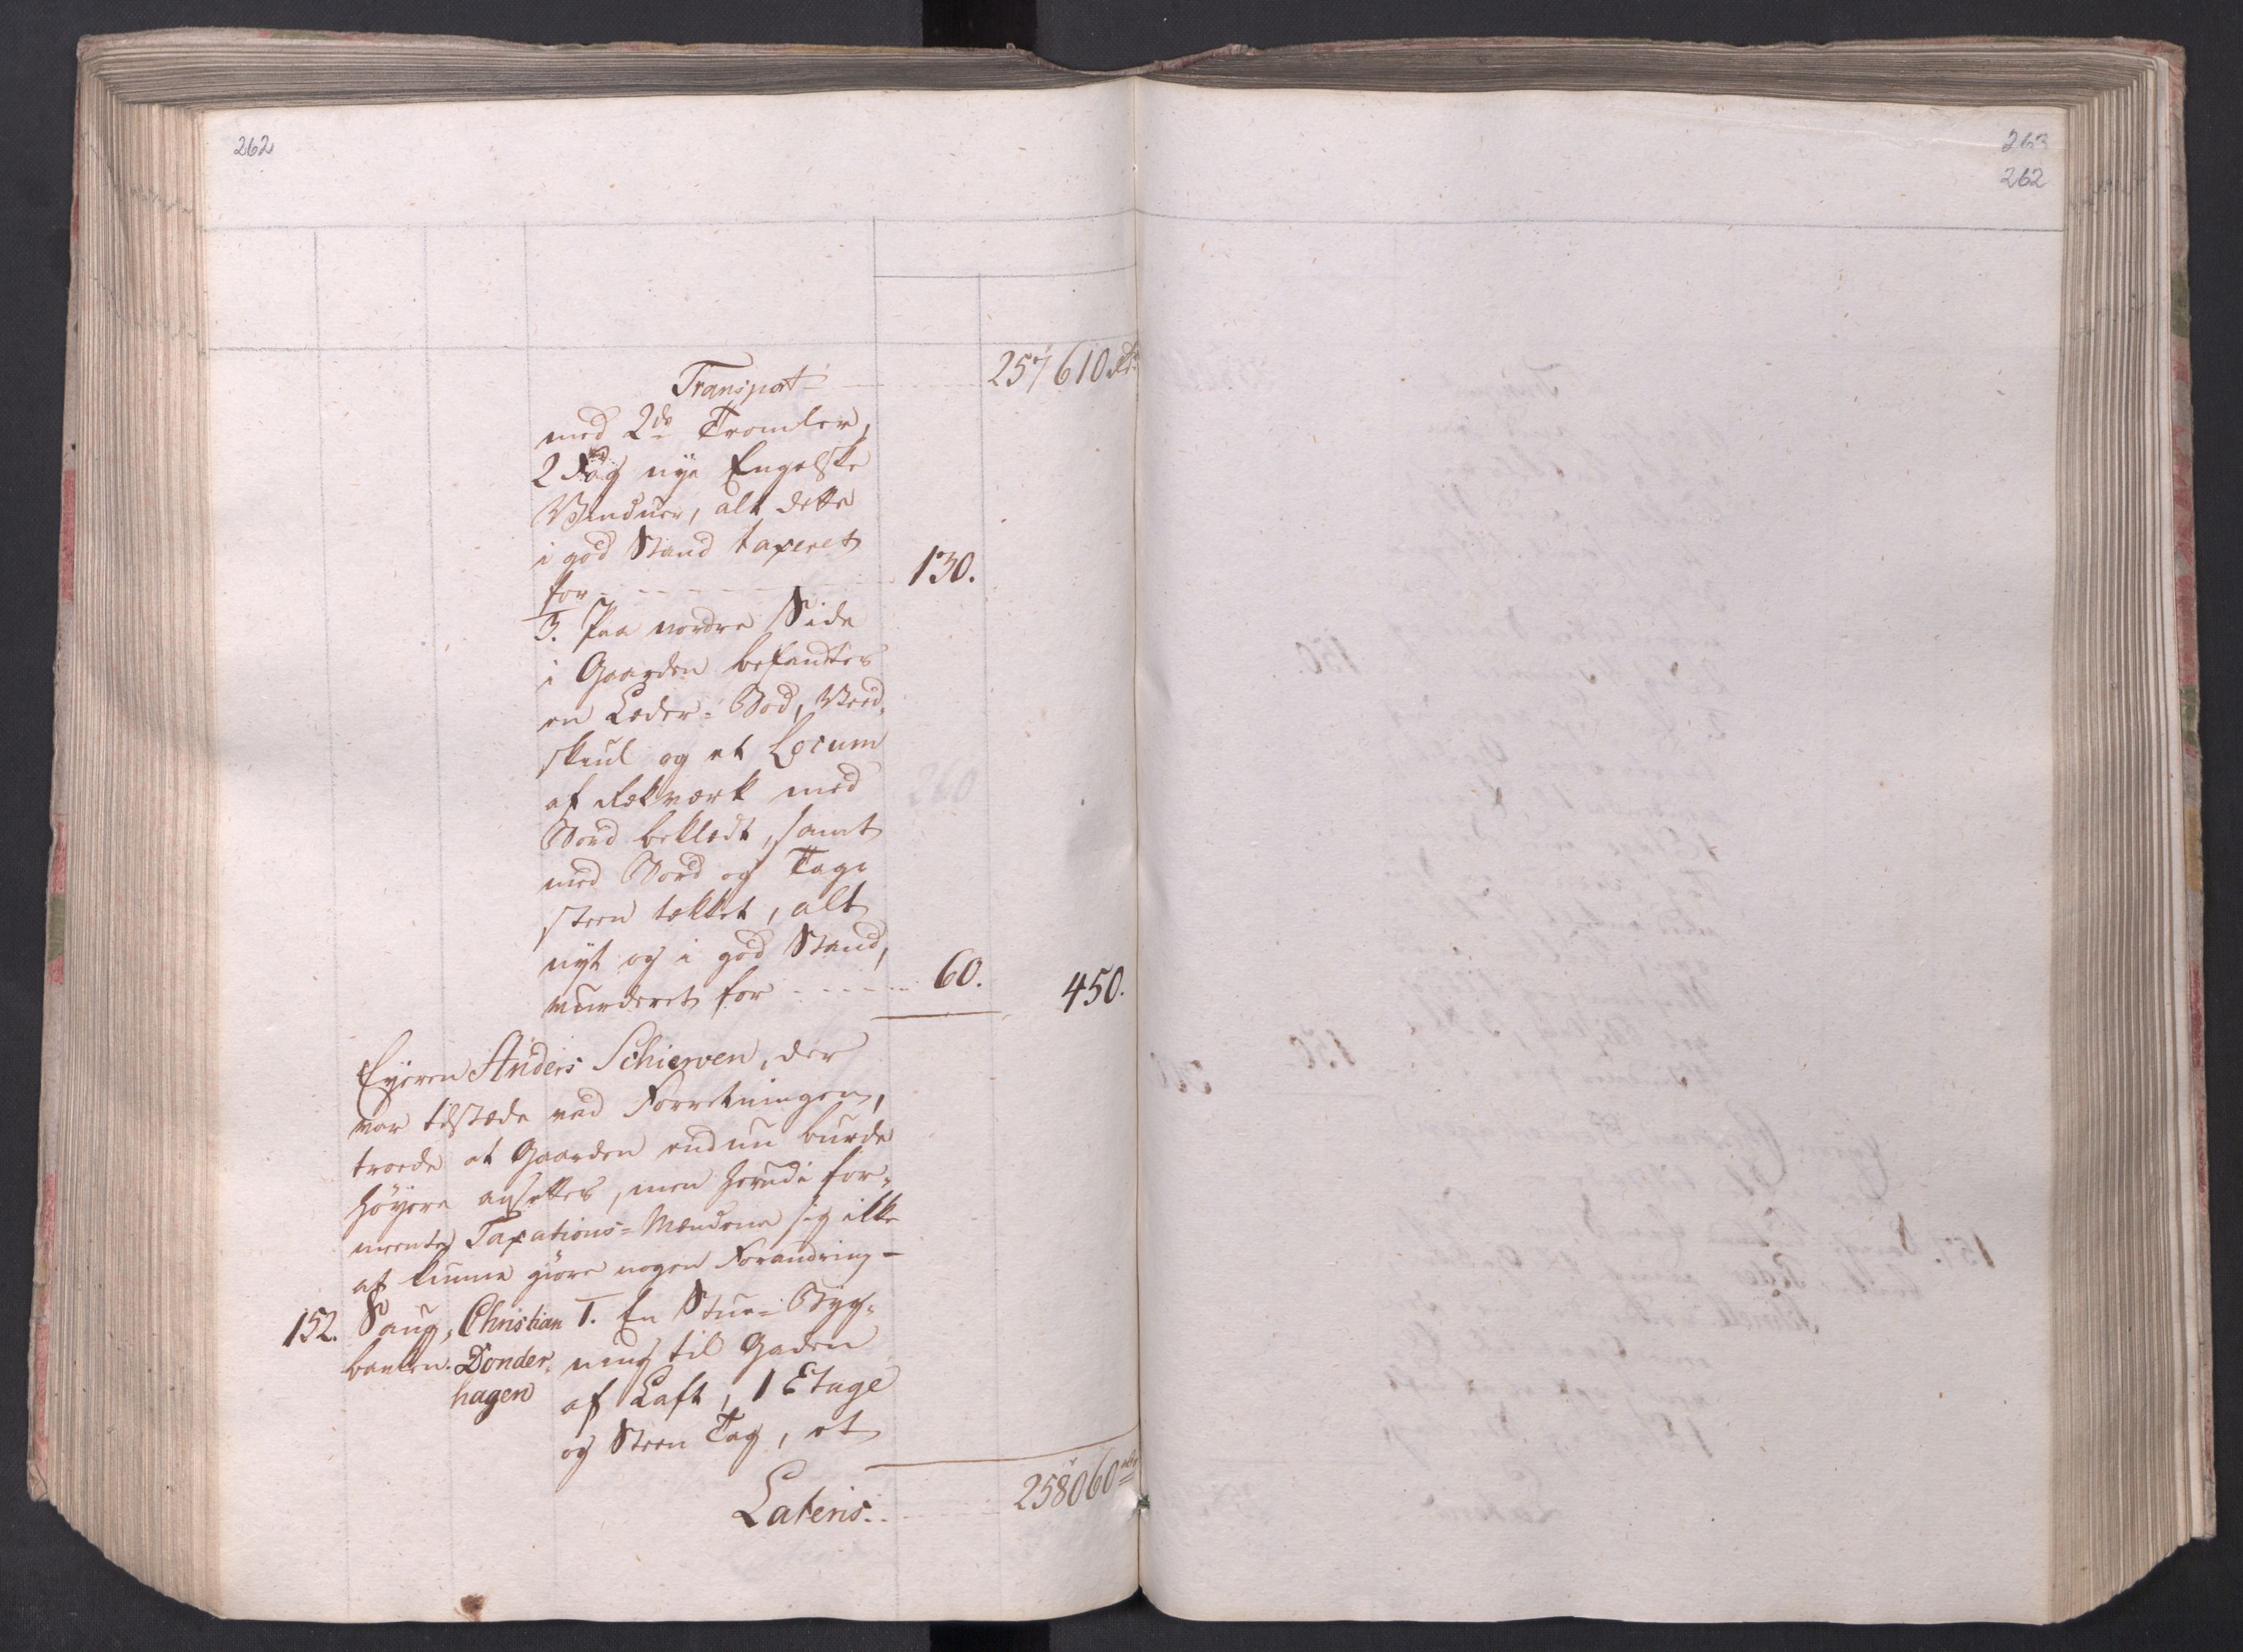 262
263
262
Transport 257610 Rd
med 2de Tromler,
2 Fag nye Engelske
Vinduer, alt dette
i god Stand taxeret
for 130.
3. Paa nordre Side
i Gaarden befandtes
en Læder-Bod, Veed-
skiul og et Locum
af Rekværk med
Bord beklædt, samt
med Bord og Tag-
steen tækket, alt
nyt og i god Stand,
vurderet for 60. 450.
Eyeren Anders Schierven, der
var tilstæde ved Forretningen,
troede at Gaarden endnu burde
høyere ansættes, men herudi for-
meente Taxations-Mændene sig ikke
at kunne giøre nogen Forandring
152. Saug- Christian 1. En Stue-Byg-
banken. Donder- ning til Gaden
hagen af Laft, 1 Etage
og Steen Tag, et
Lateris 258060